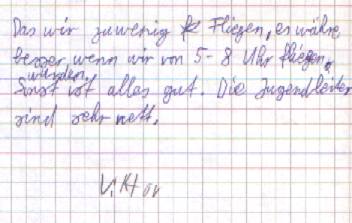 Das wir zuwenig Fliegen, es währe
besser, wenn wir von 5-8 Uhr fliegen
würden.
Sonst ist alles gut. Die Jugendleiter
sind sehr nett.
Viktor